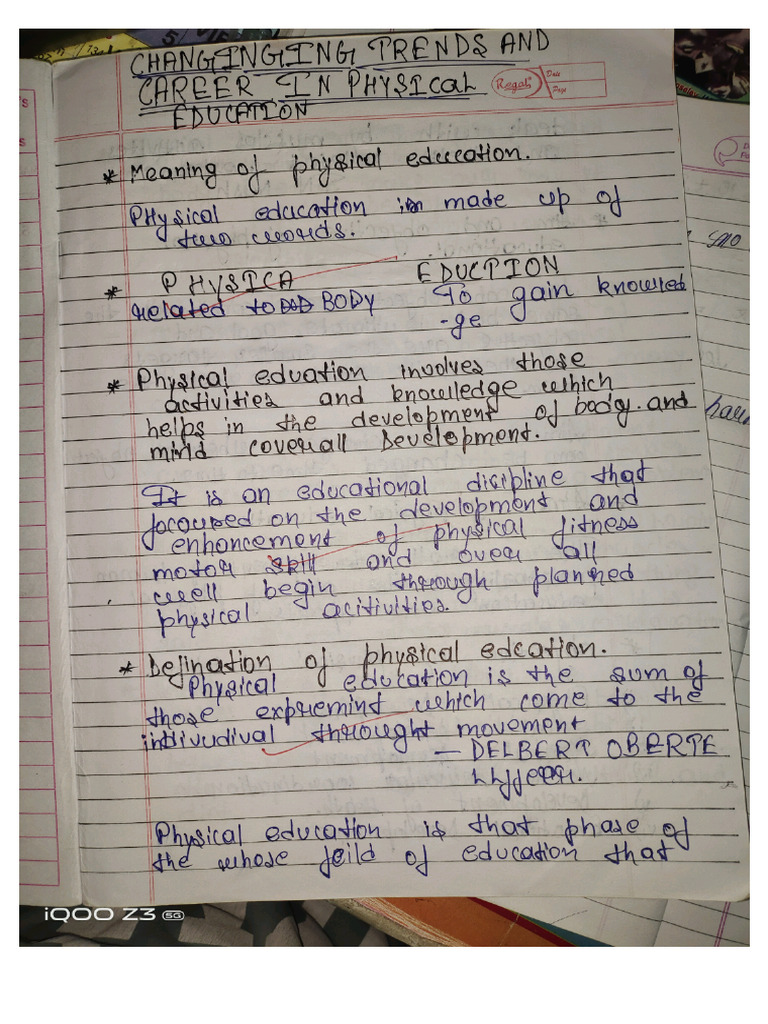 CHANGINGING TRENDS AND
CAREER IN PHYSICAL
EDUCATION
Regal
Date
Page
* Meaning of physical education.
PHysical education is made up of
two words.
* PHYSICA EDUCTION
Related to BODY To gain knowled
-ge
* Physical eduation involves those
activities and knowledge which
helps in the development of body and
mind coverall Development.
It is an educational discipline that
focoused on the development and
enhancement of physical fitness
motor skill and over all
well begin through planned
physical acitivities.
* Defination of physical edcation.
Physical education is the sum of
those expriemint which come to the
indivudival throught movement
- DELBERT OBERTE
Physical education is that phase of
the whose feild of education that
sno
iQOO Z3 5G